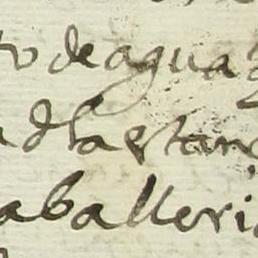 to de agua
d la estan
aballeri